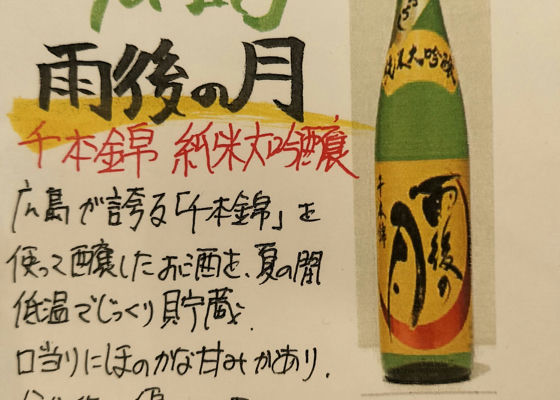 広島
雨後の月
千本錦 純米大吟醸
広島が誇る「千本錦」を
使って醸したお酒を、夏の間
低温でじっくり貯蔵。
口当りにほのかな甘みがあり、
純米大吟醸
千本錦
雨後の
月